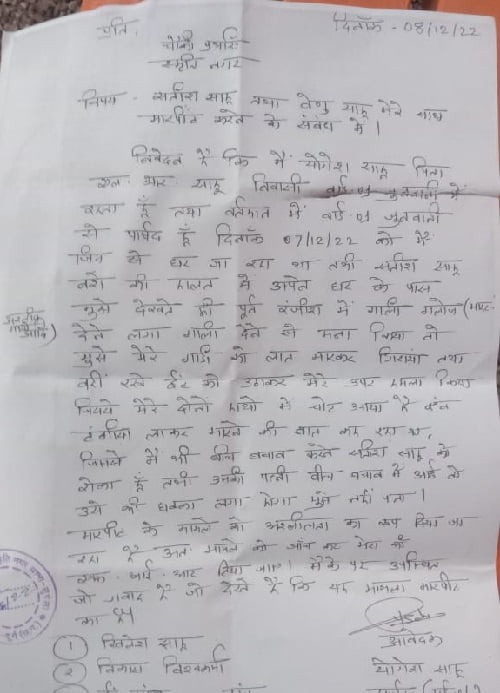 प्रति, दिनाँक - 08/12/22
चौकी प्रभारी
स्मृति नगर
विषय - सतीश साहू तथा वेणु साहू मेरे साथ
मारपीट करने के संबंध में।
निवेदन है कि मैं योगेश साहू पिता
एल. आर. साहू निवासी वार्ड 01 जुनवानी में
रहता हूँ तथा वर्तमान में वार्ड 01 जुनवानी
से पार्षद हूँ दिनाँक 07/12/22 को मैं
जिम से घर जा रहा था तभी सतीश साहू
नशे की हालत में अपने घर के पास
मुझे देखते ही पूर्व रंजीश में गाली गलौज
देने लगा गाली देने से मना किया तो
मुझे मेरे गाड़ी को लात मारकर गिराया तथा
वहीं रखे ईंट को उठाकर मेरे उपर हमला किया
जिससे मेरे दोनों हाथों में चोट आया है
लाकर मारने की बात कह रहा था,
जिससे मैं भी बीच बचाव करते सतिश साहू को
रोका हूँ तभी उनकी पत्नी बीच बचाव में आई तो
उसे भी धक्का लगा होगा मुझे नहीं पता।
मारपीट के मामले को अश्लीलता का रूप दिया जा
रहा है अतः मामले को जाँच कर मेरा भी
एफ. आई. आर लिया जाए। मौके पर उपस्थित
जो गवाह है जो देखे है कि यह मामला मारपीट
का है
आवेदक
① साहू
② विकास विश्वकर्मा योगेश साहू